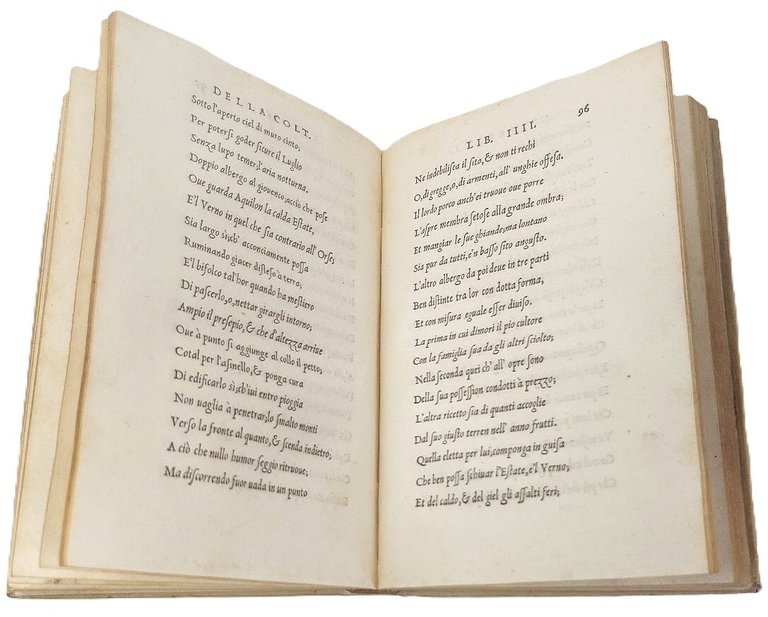 DELLA COLT.
Sotto l'aperto ciel di muro cinto,
Per potersi goder sicure il Luglio
Senza lupo temer, l'aria notturna.
Doppio albergo al giouenco, acciò che pose
Oue guarda Aquilon la calda Estate,
E'l Verno in quel che sia contrario all'Orse;
Sia largo sì; ch'acconciamente possa
Ruminando giacer disteso à terra;
E'l bifolco tal'hor quando ha mestiero
Di pascerlo, o, nettar girargli intorno;
Ampio il presepio, & che d'altezza arriue
Oue à punto si aggiunge al collo il petto;
Cotal per l'asinello, & ponga cura
Di edificarlo sì; ch'iui entro pioggia
Non uaglia à penetrar; lo smalto monti
Verso la fronte al quanto, & scenda indietro;
A ciò che nullo humor seggio ritruoue;
Ma discorrendo fuor uada in un punto
LIB. IIII. 96
Ne indebilisca il sito, & non ti rechi
O, di gregge, o, di armenti, all'unghie offesa.
Il lordo porco anch'ei truoue oue porre
L'aspre membra setose alla grande ombra;
Et mangiar le sue ghiande; ma lontano
Sia pur da tutti, è'n basso sito angusto.
L'altro albergo da poi deue in tre parti
Ben distinte tra lor con dotta forma,
Et con misura eguale esser diuiso.
La prima in cui dimori il pio cultore
Con la famiglia sua da gli altri sciolto;
Nella seconda quei ch'all'opre sono
Della sua possession condotti à prezzo;
L'altra ricetto sia di quanti accoglie
Dal suo giusto terren nell'anno frutti.
Quella eletta per lui, componga in guisa
Che ben possa schiuar l'Estate, e'l Verno;
Et del caldo, & del giel gli assalti feri;